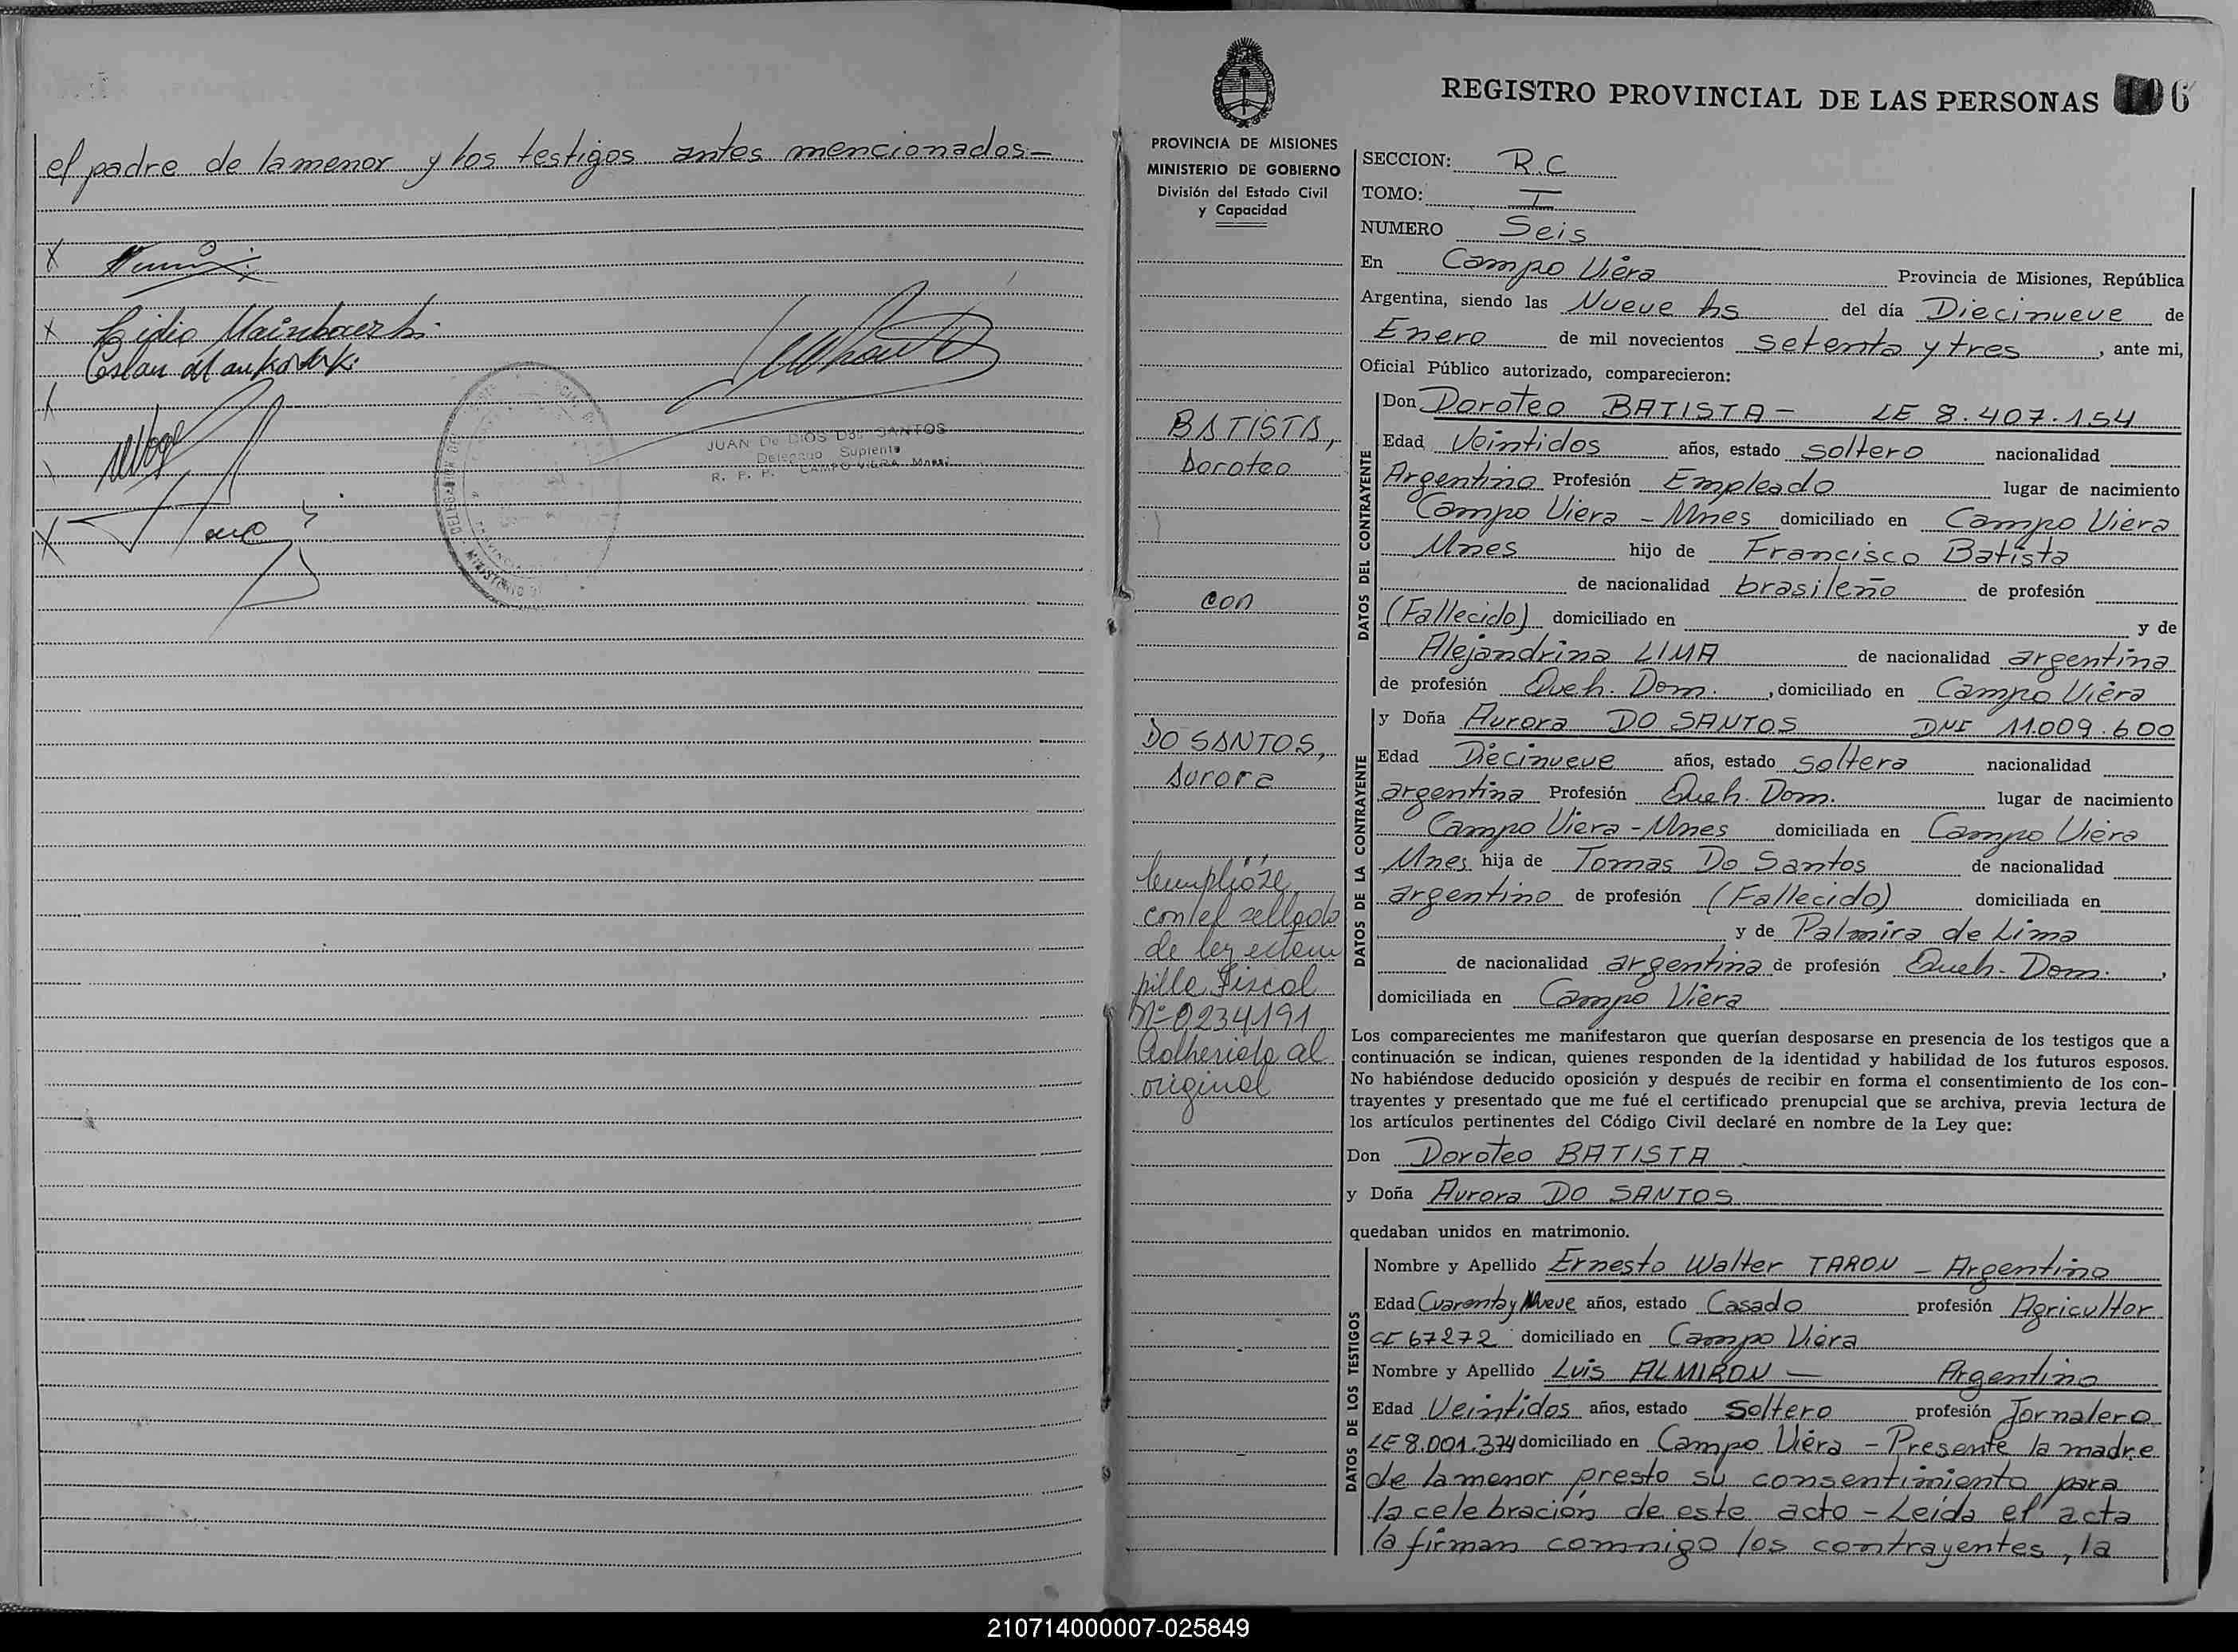 el padre de la menor y los testigos antes mencionados -
x
x Lidia
x
x
JUAN De DIOS DOS SANTOS
Delegado Suplente
R. P. P. CAMPO VIERA Mnes.
REGISTRO PROVINCIAL DE LAS PERSONAS 6
PROVINCIA DE MISIONES
MINISTERIO DE GOBIERNO
División del Estado Civil
y Capacidad
BATISTA,
Doroteo
con
DO SANTOS,
Aurora
Cumplióse
con el sellado
de ley estam
pilla Fiscal
Nº 0234191
Adherida al
original
SECCION: R.C
TOMO: I
NUMERO Seis
En Campo Viera Provincia de Misiones, República
Argentina, siendo las Nueve hs del día Diecinueve de
Enero de mil novecientos setenta y tres, ante mi,
Oficial Público autorizado, comparecieron:
DATOS DEL CONTRAYENTE
Don Doroteo BATISTA - LE 8.407.154
Edad Veintidos años, estado soltero nacionalidad
Argentino Profesión Empleado lugar de nacimiento
Campo Viera - Mnes domiciliado en Campo Viera
Mnes hijo de Francisco Batista
de nacionalidad brasileño de profesión
(Fallecido) domiciliado en y de
Alejandrina LIMA de nacionalidad argentina
de profesión Queh. Dom. , domiciliado en Campo Viera
DATOS DE LA CONTRAYENTE
y Doña Aurora DO SANTOS DNI 11.009.600
Edad Diecinueve años, estado soltera nacionalidad
argentina Profesión Queh. Dom. lugar de nacimiento
Campo Viera - Mnes domiciliada en Campo Viera
Mnes hija de Tomas Do Santos de nacionalidad
argentino de profesión (Fallecido) domiciliada en
y de Palmira de Lima
de nacionalidad argentina de profesión Queh. Dom. ,
domiciliada en Campo Viera
Los comparecientes me manifestaron que querían desposarse en presencia de los testigos que a
continuación se indican, quienes responden de la identidad y habilidad de los futuros esposos.
No habiéndose deducido oposición y después de recibir en forma el consentimiento de los con-
trayentes y presentado que me fué el certificado prenupcial que se archiva, previa lectura de
los artículos pertinentes del Código Civil declaré en nombre de la Ley que:
Don Doroteo BATISTA
y Doña Aurora DO SANTOS
quedaban unidos en matrimonio.
DATOS DE LOS TESTIGOS
Nombre y Apellido Ernesto Walter TARON - Argentino
Edad Cuarenta y Nueve años, estado Casado profesión Agricultor
CI 67272 domiciliado en Campo Viera
Nombre y Apellido Luis ALMIRON - Argentino
Edad Veintidos años, estado Soltero profesión Jornalero
LE 8.001.374 domiciliado en Campo Viera - Presente la madre
de la menor presto su consentimiento para
la celebración de este acto - Leída el acta
la firman comnigo los contrayentes, la
210714000007-025849